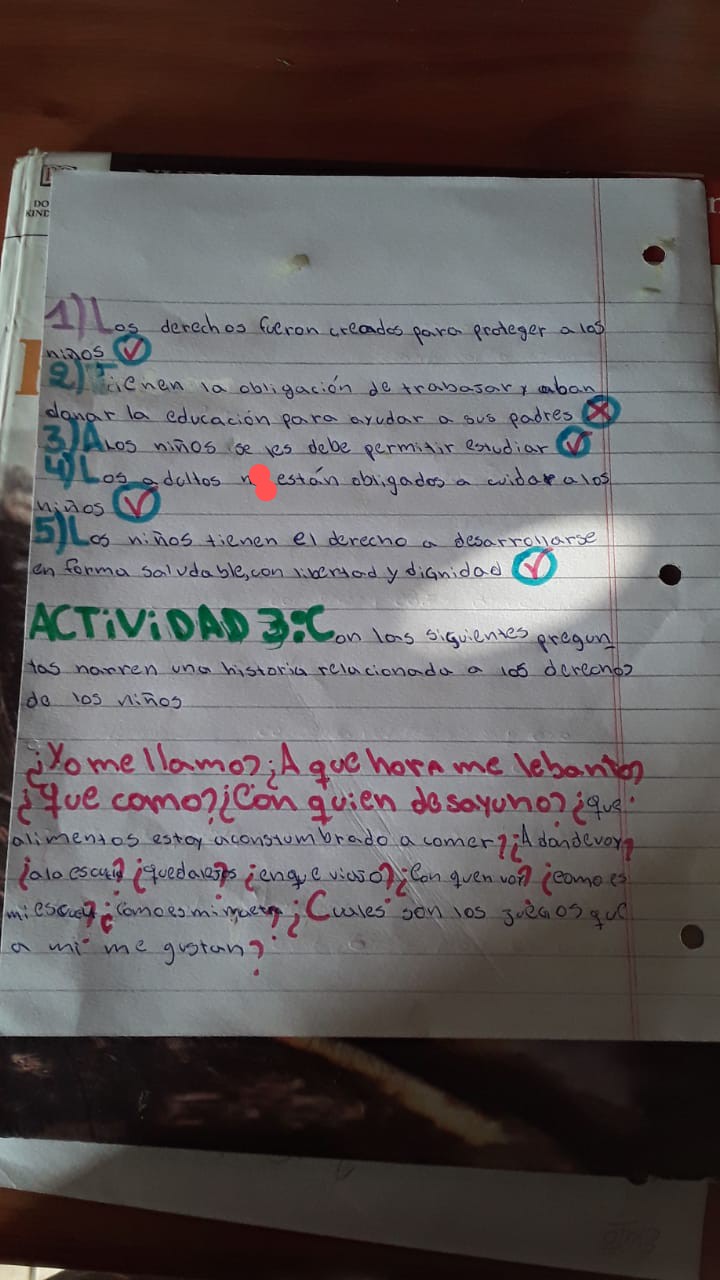 DO
KIND
1) Los derechos fueron creados para proteger a los
niños
2) Tienen la obligación de trabajar y aban
donar la educación para ayudar a sus padres
3) A Los niños se les debe permitir estudiar
4) Los adultos están obligados a cuidar a los
niños
5) Los niños tienen el derecho a desarrollarse
en forma saludable, con libertad y dignidad
ACTiViDAD 3: Con las siguientes pregun
tas narren una historia relacionada a los derechos
de los niños
¿Yo me llamo? ¿A que hora me lebanto?
¿que como? ¿Con quien desayuno? ¿que
alimentos estoy aconstumbrado a comer? ¿A donde voy?
¿a la escuela? ¿queda lejos ¿en que viajo? ¿Con quen voy? ¿como es
mi escuela? ¿Como es mi maestra? ¿Cuales son los juegos que
a mi me gustan?